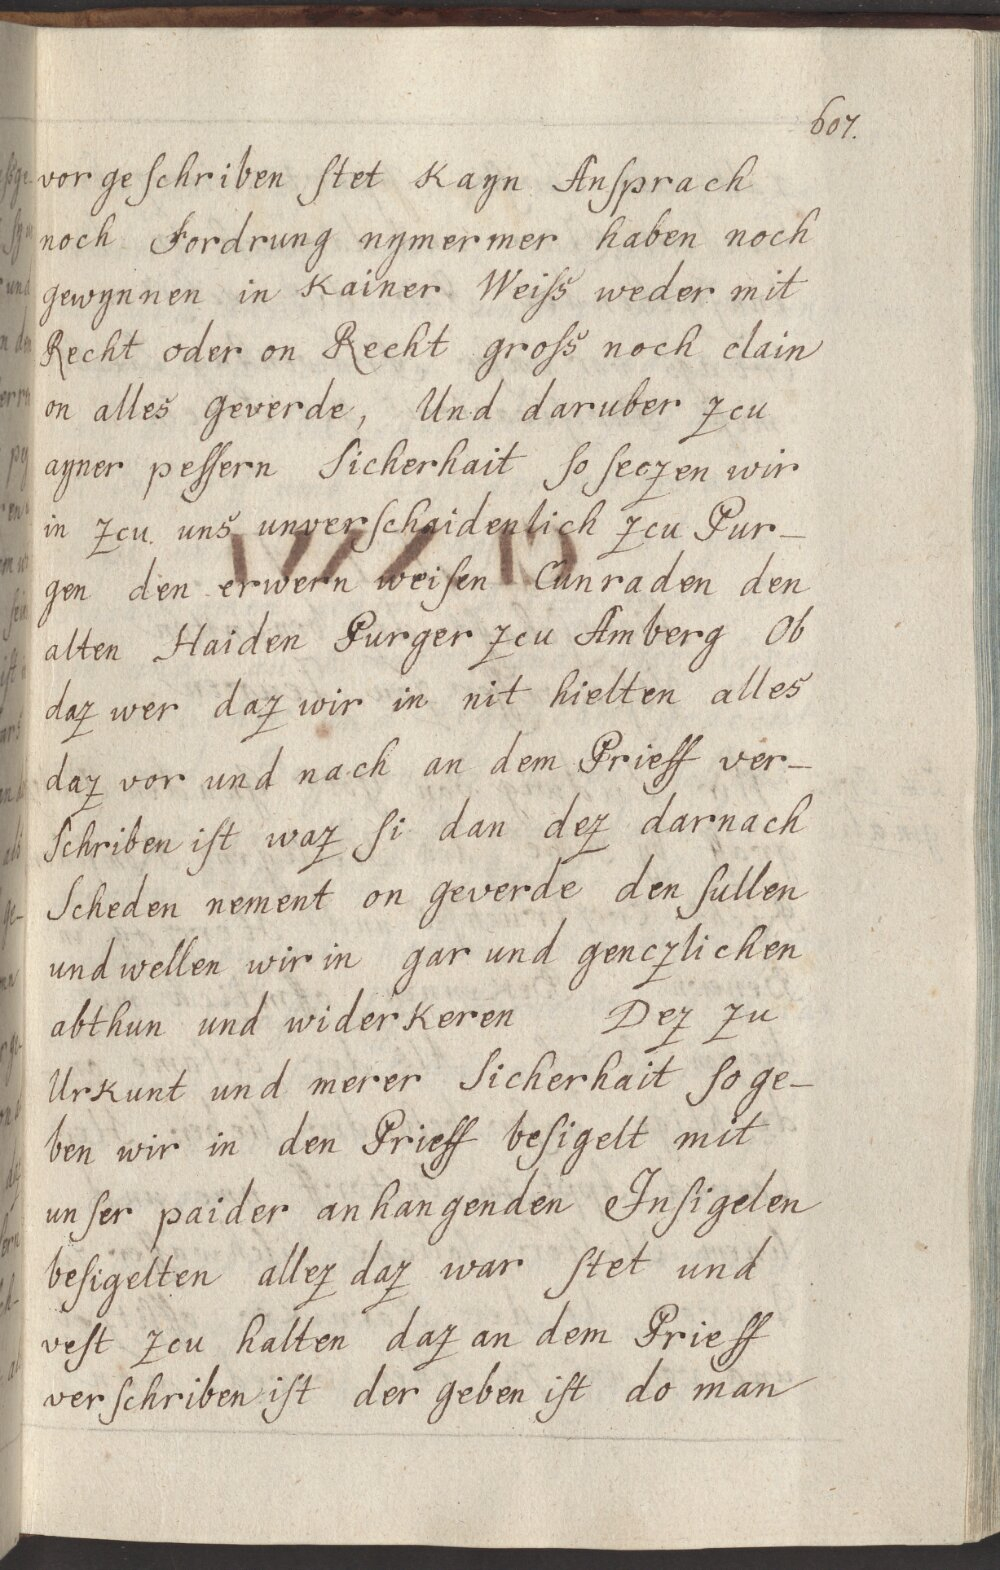 607.
vorgeschriben stet Kayn Ansprach
noch Fordrung nymermer haben noch
gewynnen in Kainer Weiss weder mit
Recht oder on Recht gross noch clain
on alles geverde, Und daruber zcu
ayner pessern Sicherhait so seczen wir
in zcu uns unverschaidenlich zcu Pur-
gen den erwern weisen Cunraden den
alten Haiden Purger zcu Amberg Ob
daz wer daz wir in nit hielten alles
daz vor und nach an dem Prieff ver-
schriben ist waz si dan dez darnach
Scheden nement on geverde den sullen
und wellen wir in gar und genczlichen
abthun und widerkeren Dez zu
Urkunt und merer Sicherhait so ge-
ben wir in den Prieff besigelt mit
unser paider anhangenden Insigelen
besigelten allez daz war stet und
vest zcu halten daz an dem Prieff
verschriben ist der geben ist do man